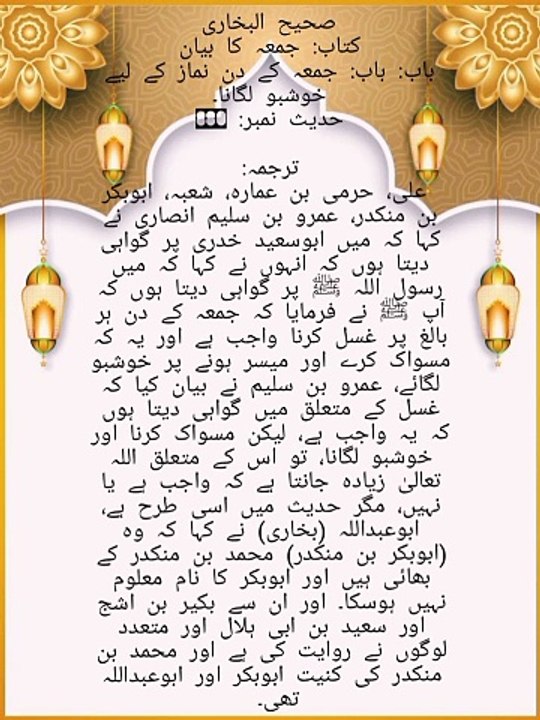 صحیح البخاری
کتاب: جمعہ کا بیان
باب: باب: جمعہ کے دن نماز کے لیے
خوشبو لگانا۔
حدیث نمبر:
ترجمہ:
علی، حرمی بن عمارہ، شعبہ، ابوبکر
بن منکدر، عمرو بن سلیم انصاری نے
کہا کہ میں ابوسعید خدری پر گواہی
دیتا ہوں کہ انہوں نے کہا کہ میں
رسول اللہ ﷺ پر گواہی دیتا ہوں کہ
آپ ﷺ نے فرمایا کہ جمعہ کے دن ہر
بالغ پر غسل کرنا واجب ہے اور یہ کہ
مسواک کرے اور میسر ہونے پر خوشبو
لگائے، عمرو بن سلیم نے بیان کیا کہ
غسل کے متعلق میں گواہی دیتا ہوں
کہ یہ واجب ہے، لیکن مسواک کرنا اور
خوشبو لگانا، تو اس کے متعلق اللہ
تعالیٰ زیادہ جانتا ہے کہ واجب ہے یا
نہیں، مگر حدیث میں اسی طرح ہے،
ابوعبداللہ (بخاری) نے کہا کہ وہ
(ابوبکر بن منکدر) محمد بن منکدر کے
بھائی ہیں اور ابوبکر کا نام معلوم
نہیں ہوسکا۔ اور ان سے بکیر بن اشج
اور سعید بن ابی ہلال اور متعدد
لوگوں نے روایت کی ہے اور محمد بن
منکدر کی کنیت ابوبکر اور ابوعبداللہ
تھی۔